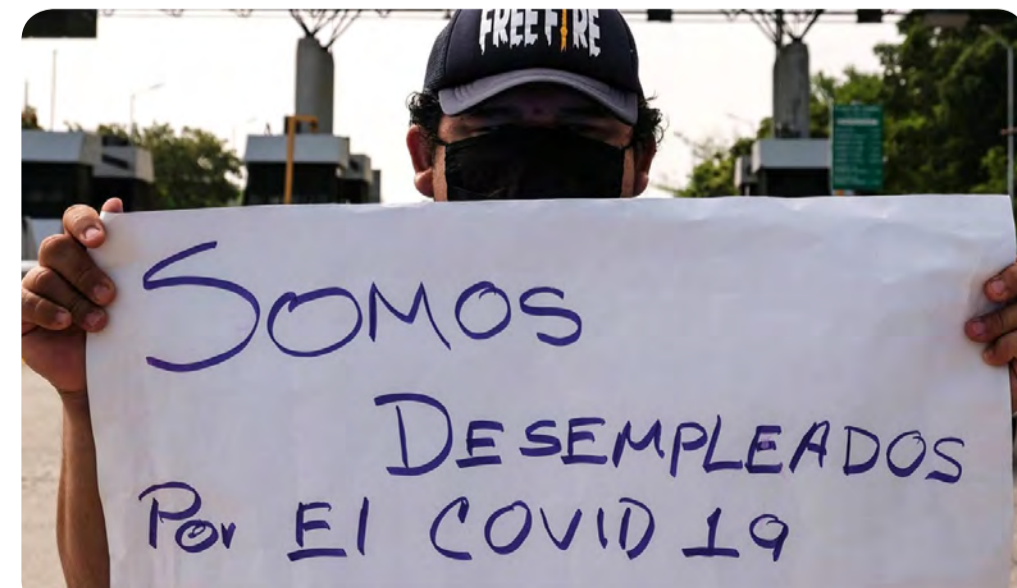 FREE FIRE
SOMOS
DESEMPLEADOS
Por El COVID 19